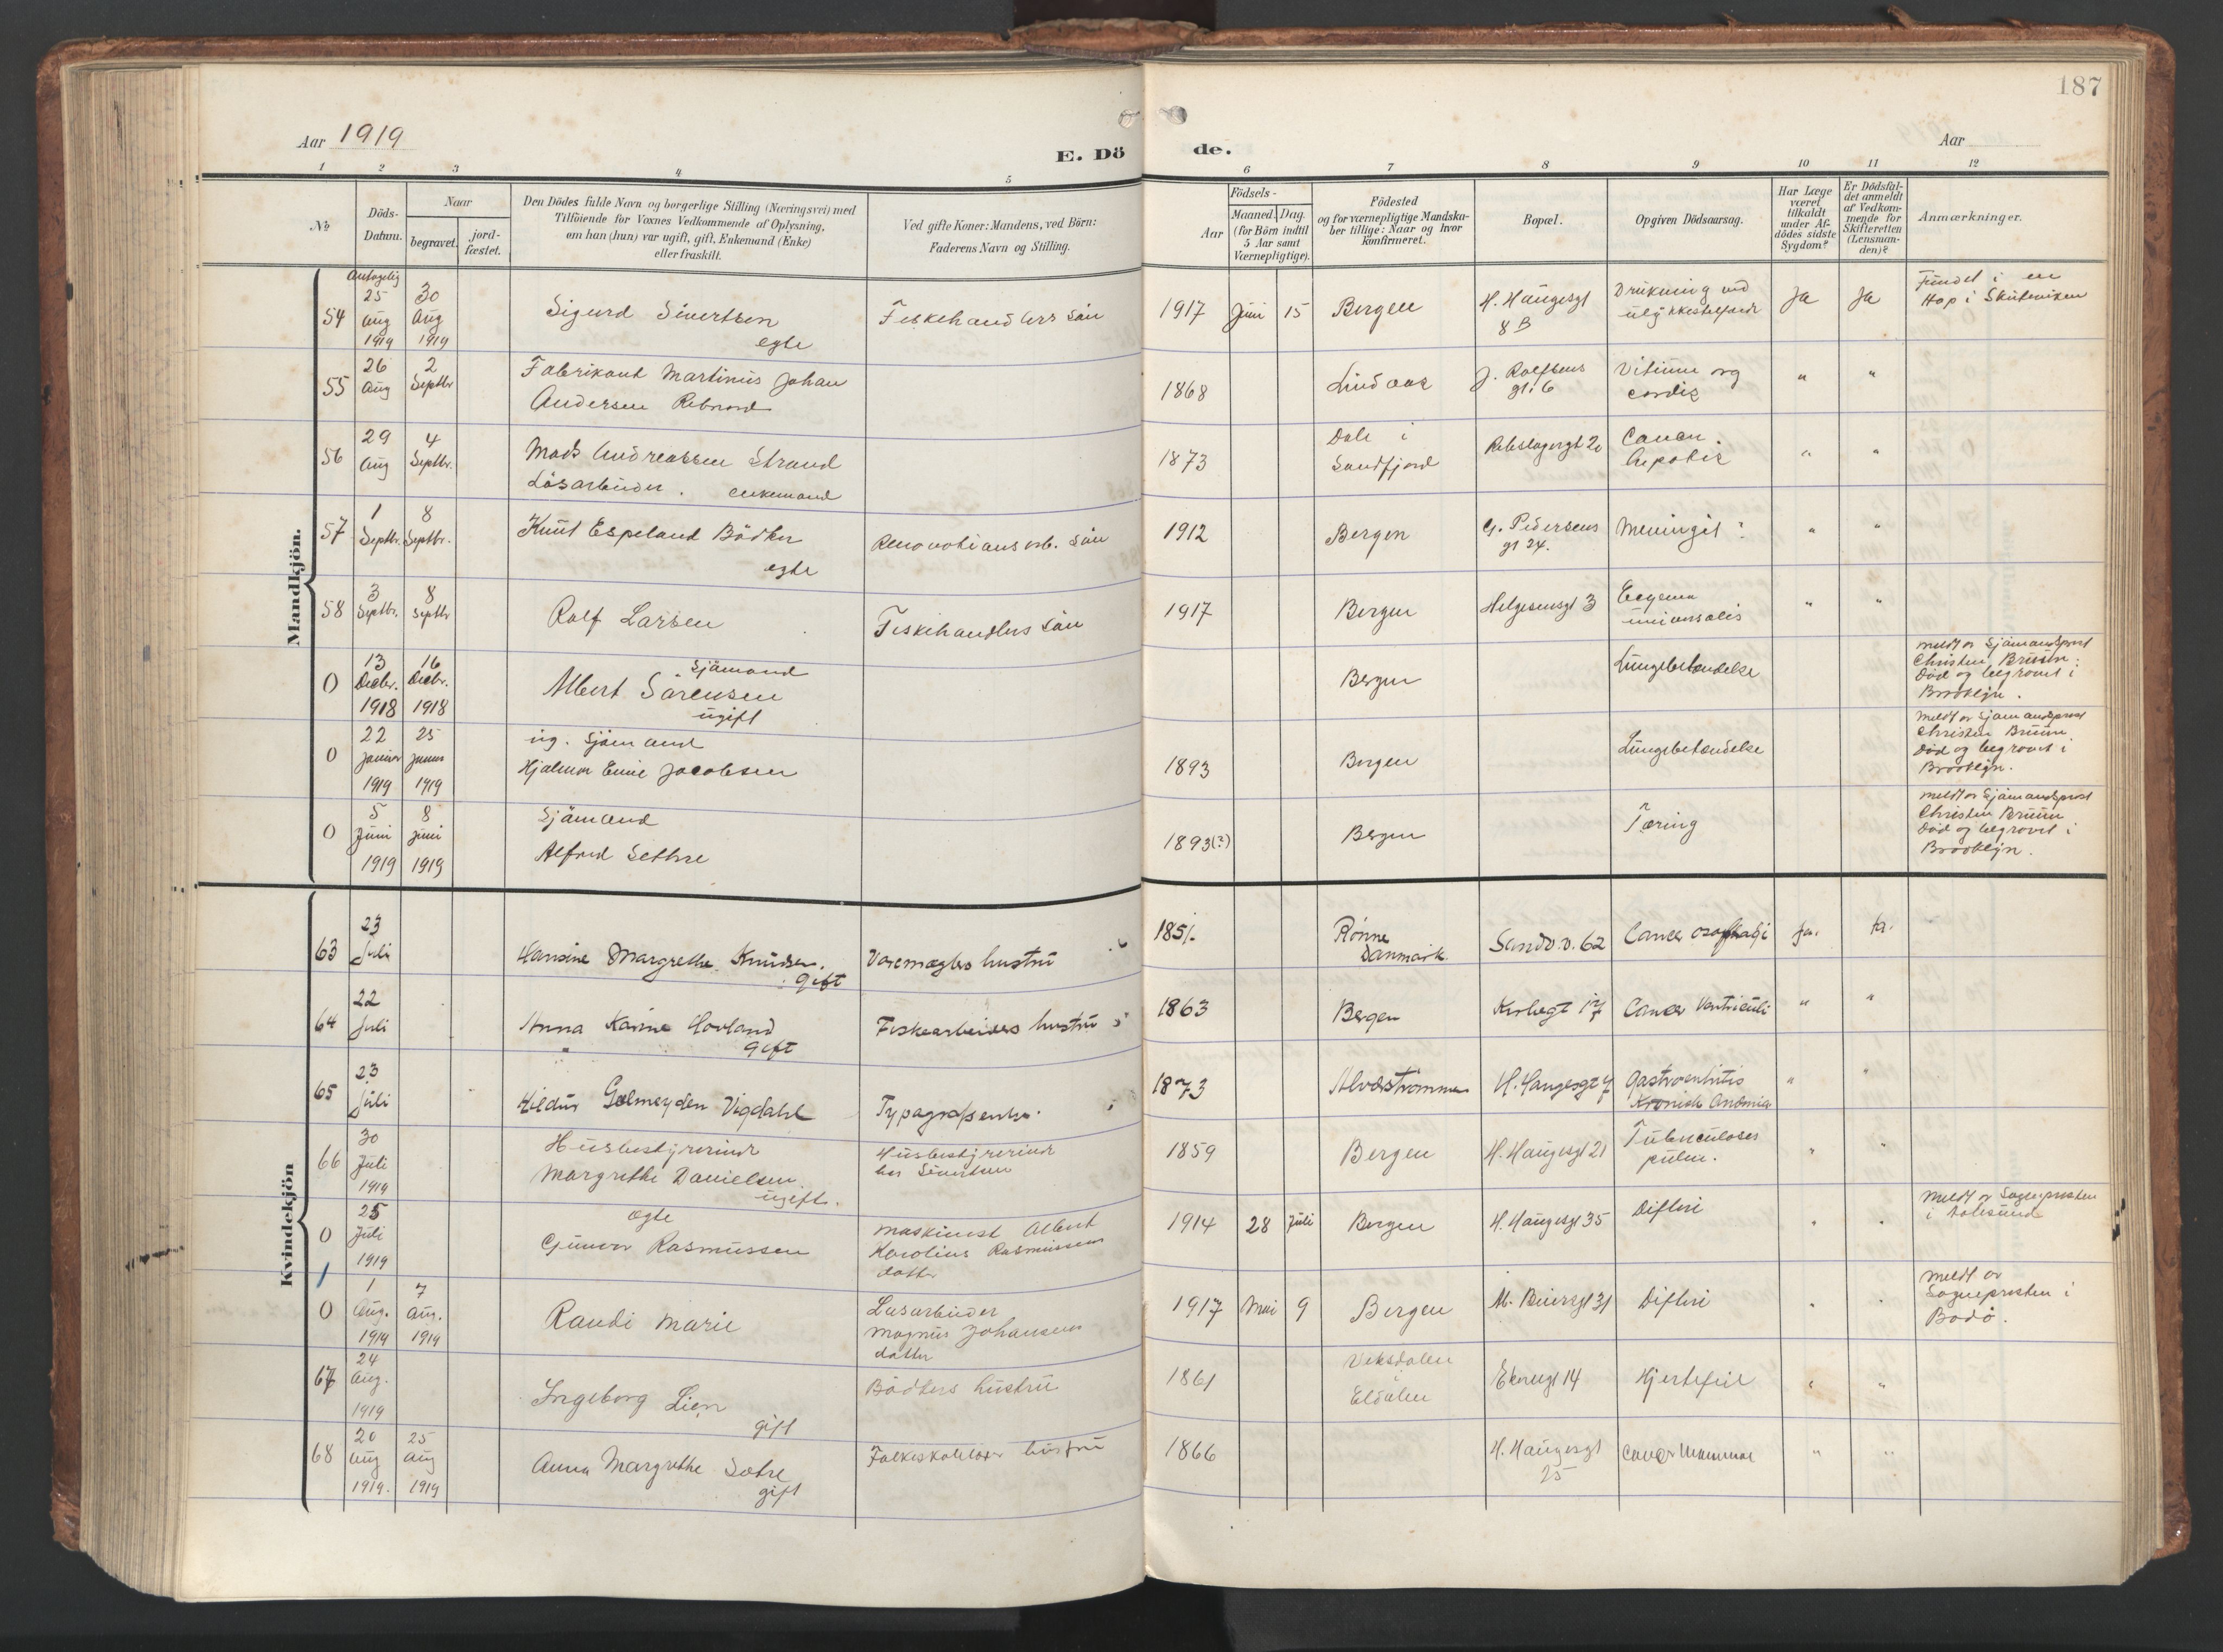 187
Aar 1919
E. Dö
de.
Aar
1 2 3 4 5 6 7 8 9 10 11 12
No
Döds-Datum.
Naar
begravet.
jord-fæstet.
Den Dödes fulde Navn og borgerlige Stilling (Næringsvei) med
Tilföiende for Voxnes Vedkommende af Oplysning,
om han (hun) var ugift, gift, Enkemand (Enke)
eller fraskilt.
Ved gifte Koner: Mandens, ved Börn:
Faderens Navn og Stilling.
Födsels-
Aar
Maaned. Dag.
(for Börn indtil
5 Aar samt
Værnepligtige).
Födested
og for værnepligtige Mandska-
ber tillige: Naar og hvor
konfirmeret.
Bopæl.
Opgiven Dödsaarsag.
Har Læge
været
tilkaldt
under Af-
dödes sidste
Sygdom?
Er Dödsfal-
det anmeldt
af Vedkom-
mende for
Skifteretten
(Lensman-
den)?
Anmærkninger.
Mandkjön.
54
Antagelig
25 Aug 1919
30 Aug 1919
Sigurd Sivertsen
egte
Fiskehandlers sön
1917 Juni 15
Bergen
H. Haugesgt
8 B
Drukning ved
ulykkestilfælde
Ja
Ja
Fundet i en
Hop i Skuteviken
55
26 Aug
2 Septbr
Fabrikant Martinus Johan
Andersen
1868
Lindaas
J. Rolfsens
gt. 6
Vitium org
cordis
"
"
56
29 Aug
4 Septbr.
Mads Andreassen Strand
Lösarbeider. enkemand
1873
Dale i
Sundfjord
Rebslagergt 20
Cancer
hepatis
"
"
57
1 Septbr.
8 Septbr.
Knut Espeland Bödker
egte
Renovationsarb. sön
1912
Bergen
G. Pedersens
gt 24.
Meningit
"
"
58
3 Septbr.
8 Septbr
Rolf Larsen
Fiskehandlers sön
1917
Bergen
Helgesensgt 3
Eczema
universalis
"
"
0
13 Decbr. 1918
16 Decbr. 1918
Sjömand
Albert Sörensen
ugift
Bergen
Lungebetændelse
meldt av Sjömandsprest
Christen Bruun.
Död og begravet i
Brooklyn.
0
22 Januar 1919
25 Januar 1919
ug. Sjömand
Hjalmar Emil Jacobsen
1893
Bergen
Lungebetændelse
meldt av Sjömandsprest
Christen Bruun
Död og begravet i
Brooklyn.
0
5 Juni 1919
8 Juni 1919
Sjömand
Alfred Sethre
1893(?)
Bergen
Tæring
meldt av Sjömandsprest
Christen Bruun
Död og begravet i
Brooklyn.
Kvindekjön
63
23 Juli
Hansine Margrethe Knudsen.
gift
Varemæglers hustru
1851.
Rönne
Danmark.
Sandv.v. 62
Cancer oesophagi
Ja.
Ja.
64
22 Juli
Anna Karine Hovland
gift
Fiskearbeiders hustru
1863
Bergen
Kirkegt
Cancer Ventriculi
"
"
65
23 Juli
Hildur Gelmeyden Vigdahl
1873
Alverströmmen
H. Haugesgt
Gastroenteritis
Kronisk Anæmia
"
"
66
30 Juli 1919
Husbestyrerinde
Margrethe Danielsen
ugift.
Husbestyrerinde
hos Sivertsen
1859
Bergen
H. Haugesgt 21
Tuberculoses
pulm.
"
"
0
25 Juli 1919
egte
Gunvor Rasmussen
maskinist Albert
Karolius Rasmussens
datter
1914 28 Juli
Bergen
H. Haugesgt 35
Difteri
"
"
meldt av Sognepresten
i Aalesund
1
0
1 Aug. 1919
7 Aug. 1919
Randi Marie
Lösarbeider
Magnus Johansens
datter
1917 Mai 9
Bergen
M. Beiersgt 31
Difteri
"
"
meldt av
Sognepresten i
Bodö.
67
24 Aug. 1919
Ingeborg Lien
gift
Bödkers hustru
1861
Viksdalen
Eldalen
Ekregt 14
Hjertefeil
"
"
68
20 Aug 1919.
25 Aug 1919
Anna Margrethe Sætre
gift
Folkeskolelærer hustru
1866
H. Haugesgt
25
Cancer Mammae
"
"